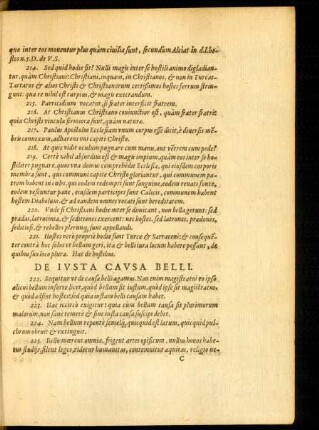 quæ inter eos mouentur plus quàm ciuilia sunt, secundum Alciat. in d.l. ho-
stes n. 5. D. de V. S.
214. Sed quid hodie fit? Nulli magis inter se hostili animo digladian-
tur, quàm Christiani: Christiani, inquam, in Christianos, & non in Turcas
Tartaros & alios Christi & Christianorum certissimos hostes ferrum strin-
gunt: qua re nihil est turpius, & magis execrandum.
215. Parricidium vocatur, si frater interficit fratrem.
216. At Christianus Christiano coniunctior est, quàm frater fratri:
quòd Christi vincula firmiora sunt, quàm naturæ.
217. Paulus Apostolus Ecclesiam vnum corpus esse dicit, è diuersis mẽ-
bris connexum, adhærens vno capiti Christo.
218. At quis vidit oculum pugnare cum manu, aut vẽtrem cum pede?
219. Certè nihil absurdius est & magis impium, quàm eos inter se ho-
stiliter pugnare, quos vna domus comprehendit Ecclesiæ, qui eiusdem corporis
membra sunt, qui communi capite Christo gloriantur, qui communem pa-
trem habent in cœlis, qui eodem redempti sunt sanguine, eodem renati fonte,
eodem vescuntur pane, eiusdem participes sunt Calicis, communem habent
hostem Diabolum, & ad eandem denique vocati sunt hereditatem.
220. Vnde si Christiani hodie inter se dimicant, non bella gerunt: sed
prædas, latrocinia, & seditiones exercent: nec hostes, sed latrones, prædones,
seditiosi, & rebelles plerunq; sunt appellandi.
221. Hostes verò propriè hodie sunt Turcæ & Sarraceni: & consequẽ-
ter contrà hos solos vt bellum geri, ita & belli iura locum habere possunt, de
quibus suo loco plura. Hæc de hostibus.
DE IVSTA CAVSA BELLI.
222. Sequitur vt de causa belli agamus. Non enim magistratui ex ipso
alicui bellum inferre licet, quòd bellum sit iustum, quòd ipse sit magistratus,
& quòd alij sint hostes: sed quia iustam belli causam habet.
223. Hæc ratiò exigitur: quia cum bellum causa sit plurimorum
malorum, non sanè temerè & sine iusta causa suscipi debet.
224. Nam bellum repentè serenis, quicquid est latum, quicquid pul-
chrum obruit & extinguit.
225. Belli mœrent omnia, frigent artes opificum, nullus honos habe-
tur studijs, silent leges, ridetur humanitas, contemnitur æquitas, religio ne-
C